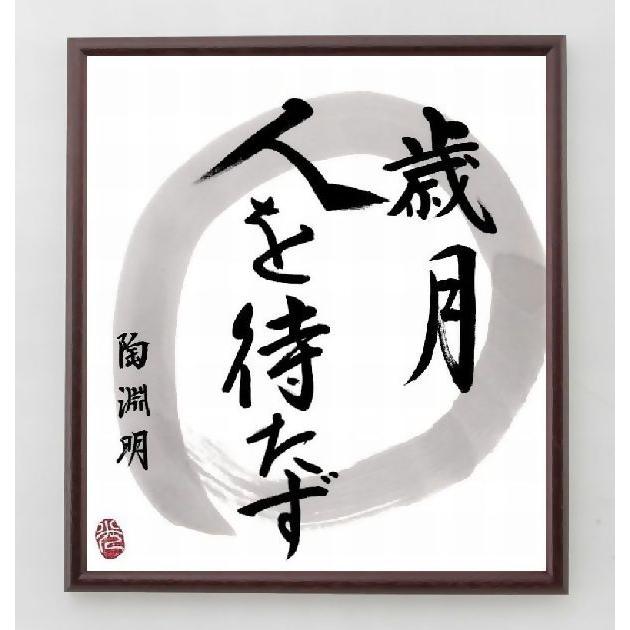 歳月
人を待たず
陶淵明